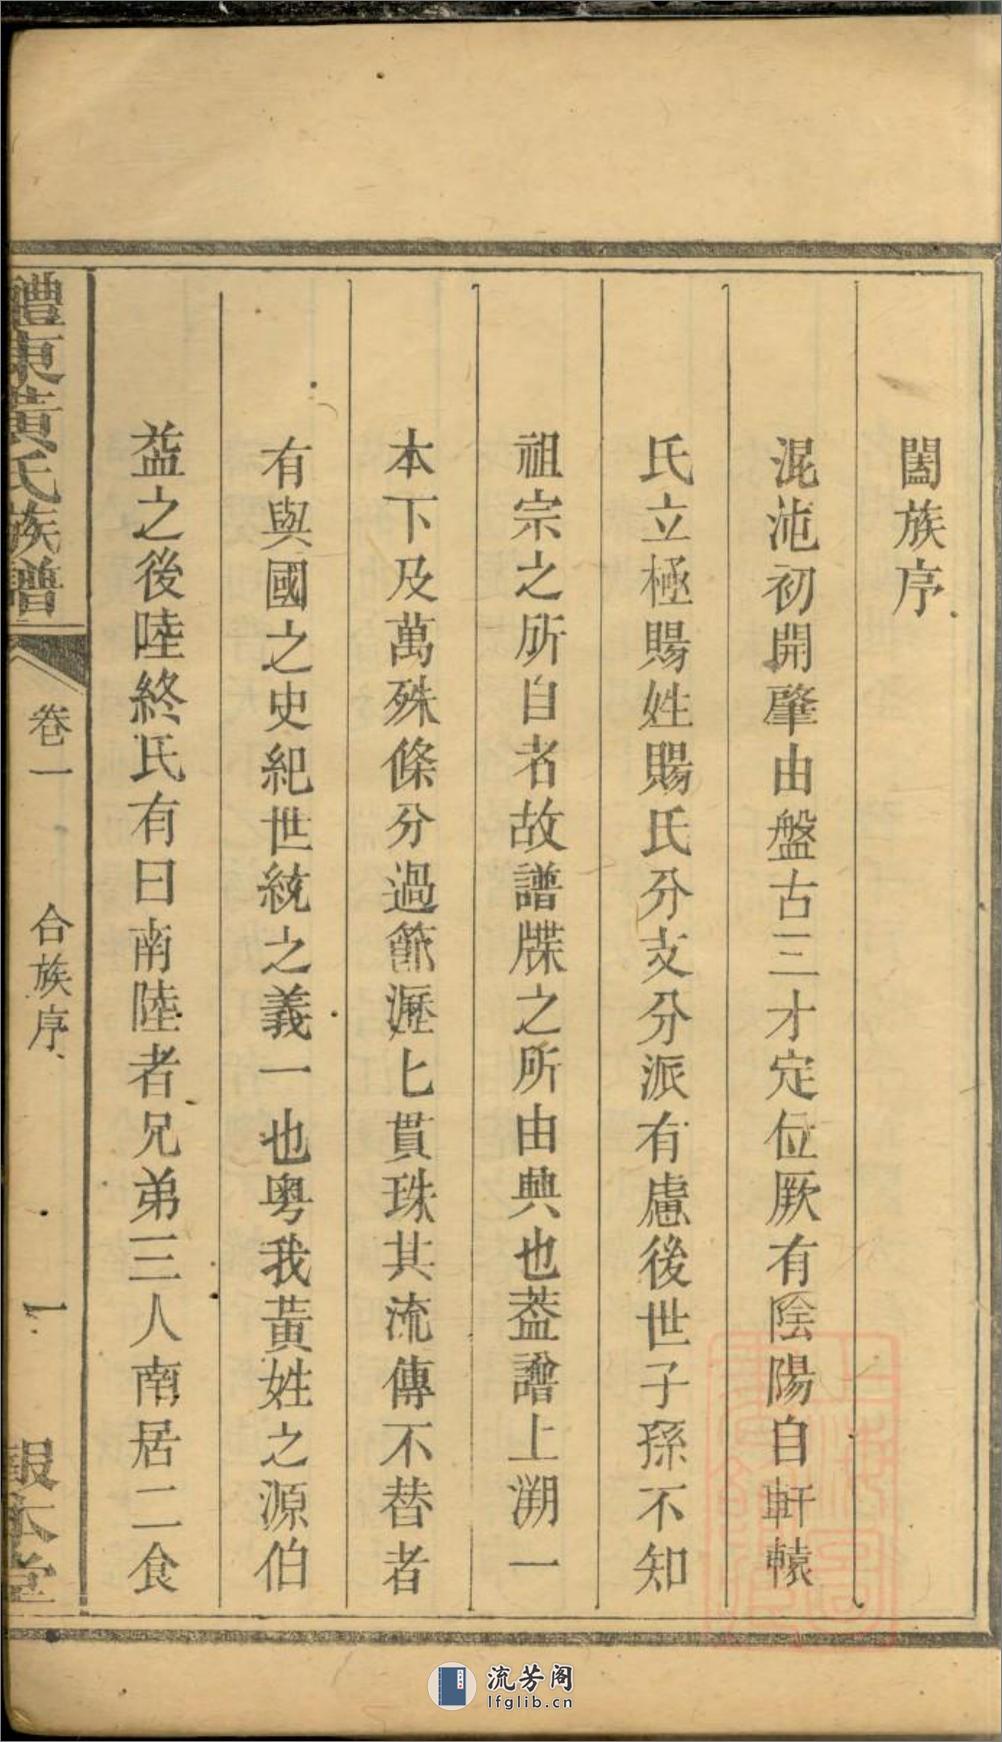 闔族序
混沌初開肇由盤古三才定位厥有陰陽自軒轅
氏立極賜姓賜氏分支分派有慮後世子孫不知
祖宗之所自者故譜牒之所由興也葢譜上溯一
本下及萬殊條分過節瀝匕貫珠其流傳不替者
有與國之史紀世統之義一也粵我黃姓之源伯
益之後陸終氏有曰南陸者兄弟三人南居二食
醴東黃氏族譜
卷一
合族序
一
報本堂
流芳阁
lfglib.cn